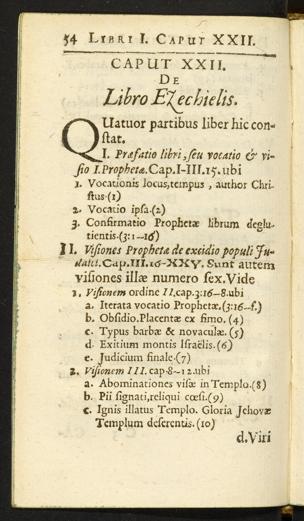 54 LIBRI I. CAPUT XXII.
CAPUT XXII.
DE
Libro Ezechielis.
QUatuor partibus liber hic con-
stat.
I. Præfatio libri, seu vocatio & vi-
sio I. Prophetæ. Cap. I-III. 15. ubi
1. Vocationis locus, tempus, author Chri-
stus. (1)
2. Vocatio ipsa. (2)
3. Confirmatio Prophetæ librum deglu-
tientis. (3:1-16)
II. Visiones Prophetæ de excidio populi Ju-
daici. Cap. III. 16-XXV. Sunt autem
visiones illæ numero sex. Vide
1. Visionem ordine II. cap. 3:16-8. ubi
a. Iterata vocatio Prophetæ. (3:16-f.)
b. Obsidio. Placentæ ex fimo. (4)
c. Typus barbæ & novaculæ. (5)
d. Exitium montis Israëlis. (6)
e. Judicium finale. (7)
2. Visionem III. cap. 8-12. ubi
a. Abominationes visæ in Templo. (8)
b. Pii signati, reliqui cæsi. (9)
c. Ignis illatus Templo. Gloria Jehovæ
Templum deserentis. (10)
d. Viri